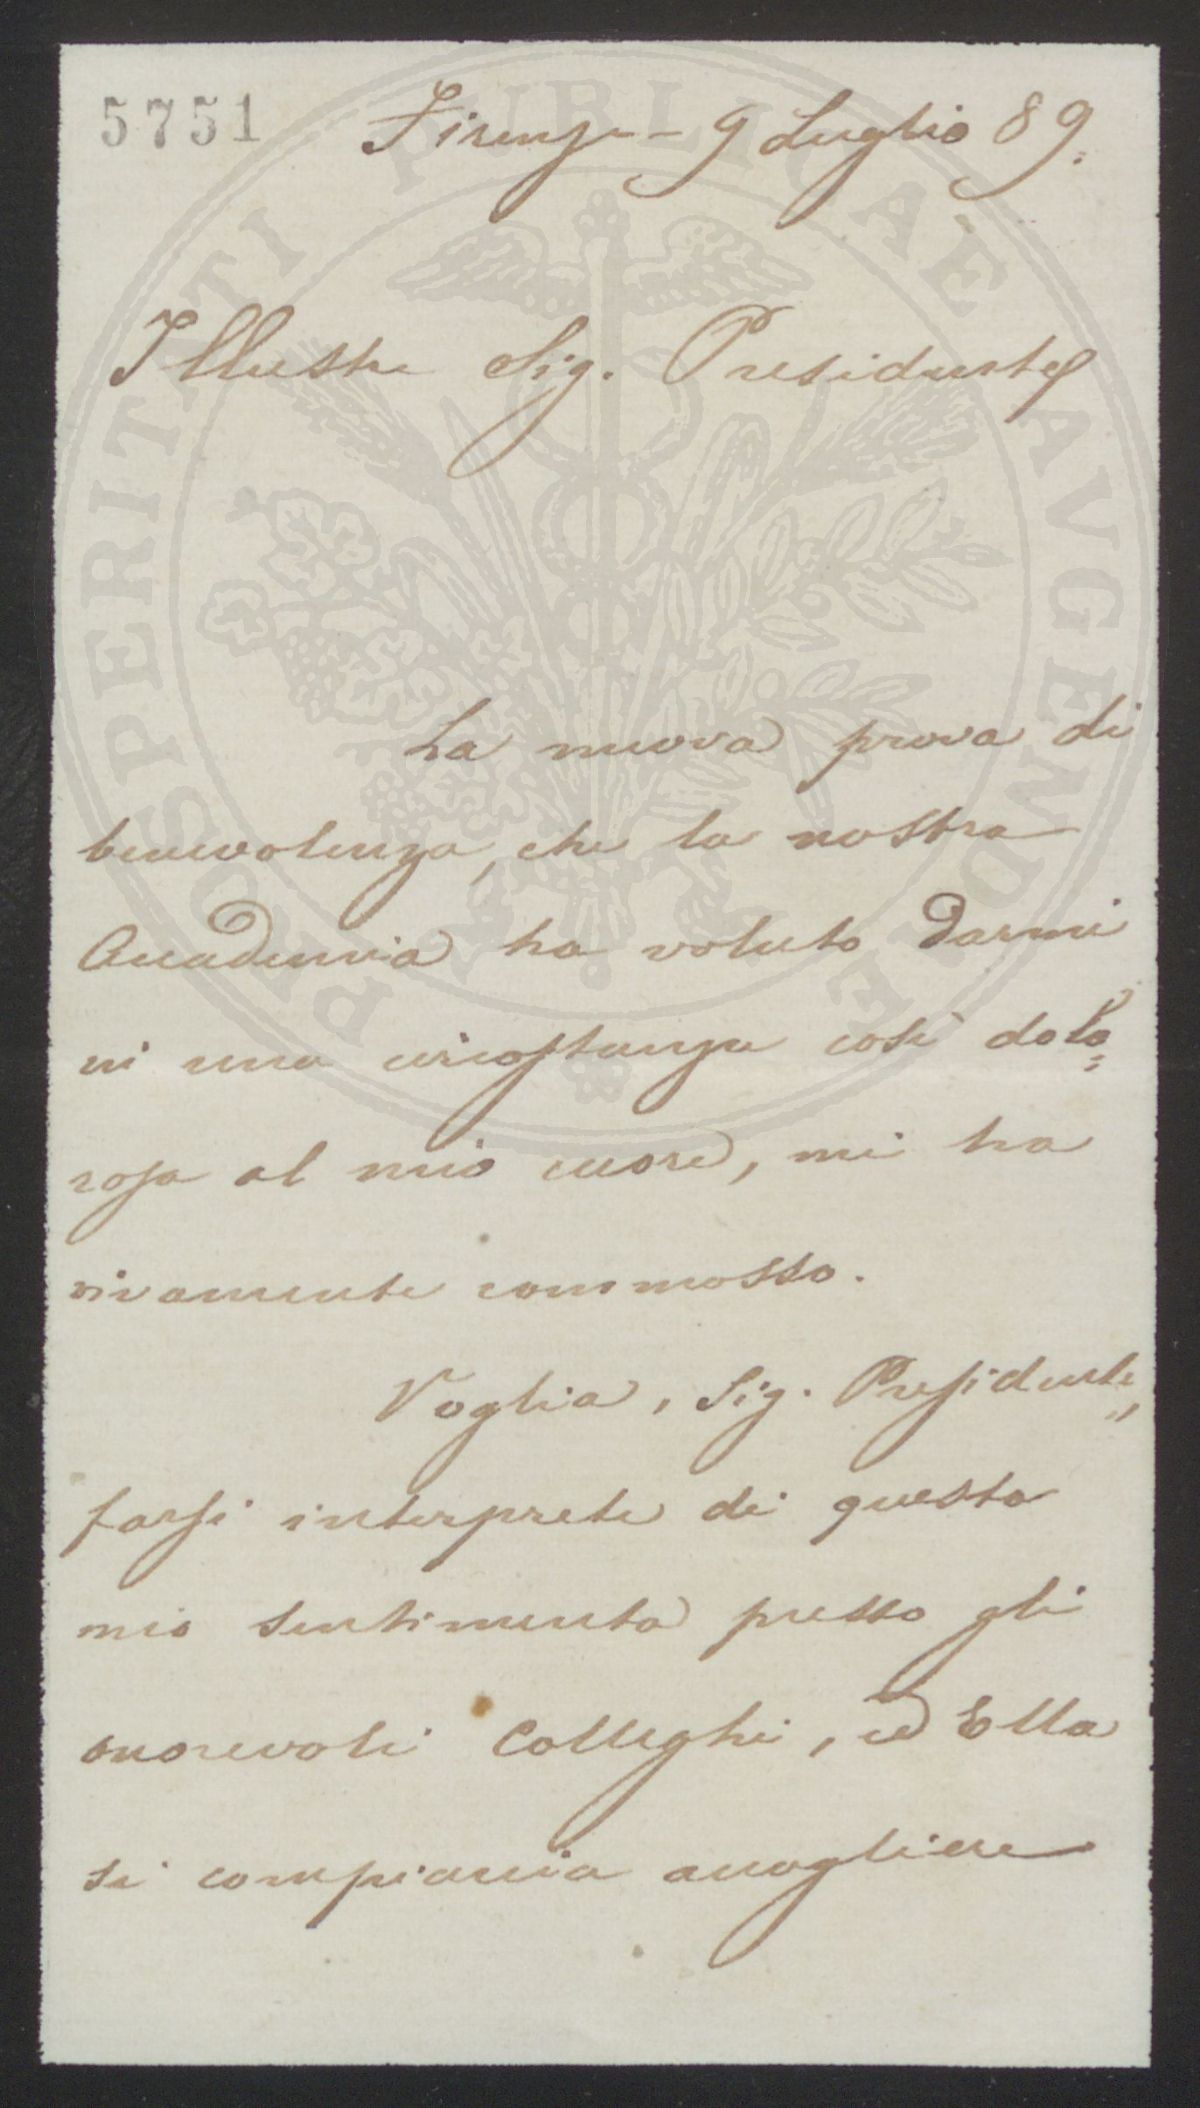 5751 Firenze - 9 Luglio 89.
Illustre Sig. Presidente
La nuova prova di
benevolenza, che la nostra
Accademia ha voluto darmi
in una circostanza così dolo=
rosa al mio cuore, mi ha
vivamente commosso.
Voglia, Sig. Presidente,
farsi interprete di questo
mio sentimento presso gli
onorevoli Colleghi, ed Ella
si compiaccia accogliere
PROSPERITATI PUBLICAE AVGENDAE